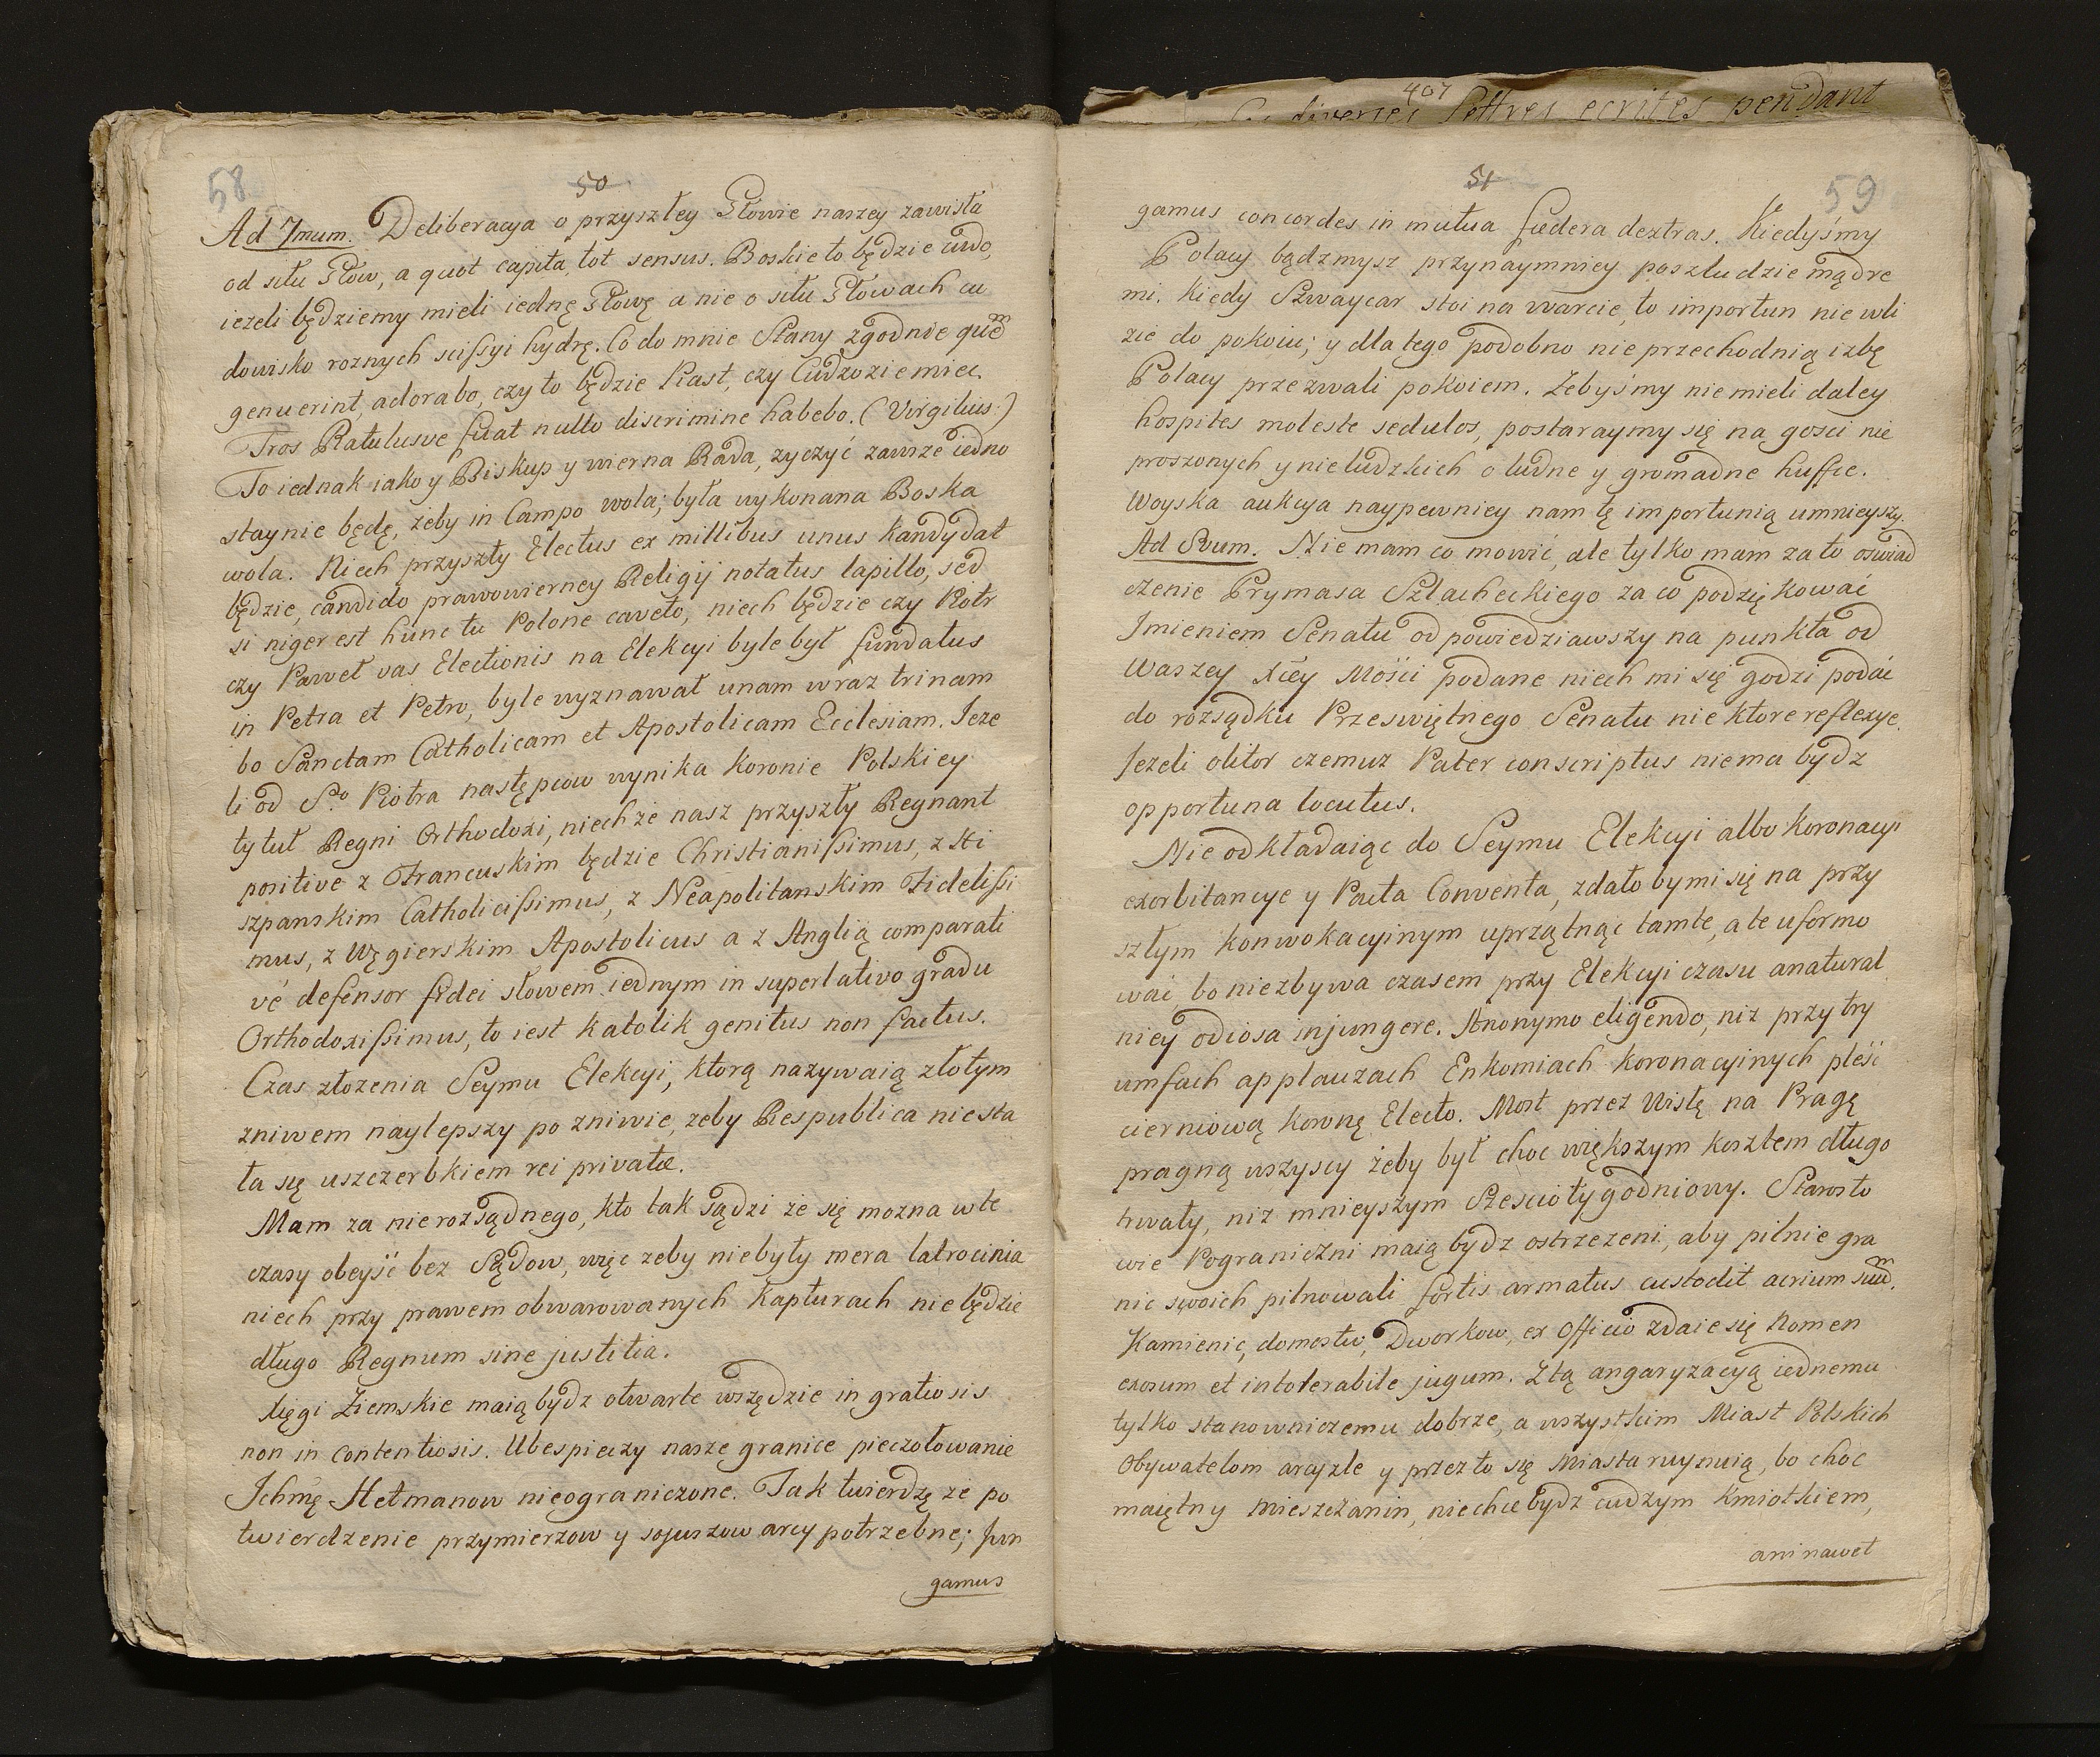 58
50
Ad 7mum. Deliberacya o przyszłey Głowie naszey zawisła
od siłu Głow, a quot capita, tot sensus. Boskie to będzie cudo,
iezeli będziemy mieli iednę Głowę a nie o siłu Głowach cu
dowisko roznych scissyi hydrę. Co do mnie Stany zgodnie quem
genuerint, adorabo, czy to będzie Piast, czy Cudzoziemiec.
Tros Ratulusve fuat nullo discrimine habebo. (Virgilius:)
To iednak iako y Biskup y wierna Rada, zyczyć zawrze iedno
staynie będę, żeby in Campo wola; była wykonana Boska
wola. Niech przyszły Electus ex millibus unus Kandydat
będzie, candido prawowierney Religij notatus lapillo, sed
si niger est hunc tu Polone caveto, niech będzie czy Piotr
czy Paweł vas Electionis na Elekcyi byle był fundatus
in Petra et Petro, byle wyznawał unam wraz trinam
bo Sanctam Catholicam et Apostolicam Ecclesiam. Ieze
li od S.o Piotra następcow wynika Koronie Polskiey
tytuł Regni Orthodoxi, niechże nasz przyszły Regnant
positive z Francuskim będzie Christianissimus, z Hi
szpanskim Catholicissimus, z Neapolitanskim Fidelissi
mus, z Węgierskim Apostolicus a z Anglią comparati
vé defensor fidei słowem iednym in superlativo gradu
Orthodoxissimus, to iest Katolik genitus non factus.
Czas złozenia Seymu Elekcyi, ktorą nazywaią złotym
zniwem naylepszy po zniwie, zeby Respublica niesta
ła się uszczerbkiem rei privatæ.
Mam za nierozsądnego, kto tak sądzi że się mozna wte
czasy obeyść bez Sądow, więc zeby niebyły mera latrocinia
niech przy prawem obwarowanych Kapturach nie będzie
długo Regnum sine justitia.
Xięgi Ziemskie maią bydz otwarte wszędzie in gratiosis
non in contentiosis. Ubespieczy nasze granice pieczołowanie
Ichmę Hetmanow nieograniczone. Tak twierdzę ze po
twierdzenie przymierzow y sojuszow arcy potrzebne; jun
gamus
407
diverses Lettres ecrites pendant
51
59
gamus concordes in mutua fœdera dextras. Kiedyśmy
Polacy bądzmysz przynaymniey poszludzie mądre
mi. Kiedy Szwaycar stoi na warcie, to importun niewli
zie do pokoiu; y dla tego podobno nie przechodnią izbę
Polacy przezwali pokoiem. Zebyśmy niemieli daley
hospites moleste sedulos, postaraymy się na gosci nie
proszonych y nieludzkich o ludne y gromadne huffce.
Woyska aukcya naypewniey nam tę importunią umnieyszy.
Ad 8vum. Nie mam co mowić, ale tylko mam za to oswiad
czenie Prymasa Szlacheckiego za co podziękować
Imieniem Senatu odpowiedziawszy na punkta od
Waszey Xcéy Mości podane niech mi się godzi podać
do rozsądku Przeswiętnego Senatu niektore reflexye.
Jezeli olitor czemuz Pater conscriptus niema bydz
opportuna locutus.
Nie odkładaiąc do Seymu Elekcyi albo Koronacyi
exorbitancye y Pacta Conventa, zdałobymisię na przy
szłym Konwokacyinym uprzątnąc tamte, a te uformo
wać, bo niezbywa czasem przy Elekcyi czasu a natural
niey odiosa injungere. Anonymo eligendo, niz przy try
umfach applauzach Enkomiach Koronacyinych pleść
cierniową Koronę Electo. Most przez Wisłę na Pragę
pragną wszyscy żeby był choc większym kosztem długo
trwały, niz mnieyszym Sześciotygodniowy. Starosto
wie Pograniczni maią bydz ostrzezeni, aby pilnie gra
nic swoich pilnowali fortis armatus custodit atrium suum.
Kamienic, domostw, Dworkow, ex Officio zdaie się Nomen
exosum et intolerabile jugum. Z tą angaryzacyą iednemu
tylko stanowniczemu dobrze, a wszystkim Miast Polskich
Obywatelom arcyzle y przez to się Miasta ruynuią, bo choc
maiętny Mieszczanin, niechce bydz cudzym Kmiotkiem,
ani nawet